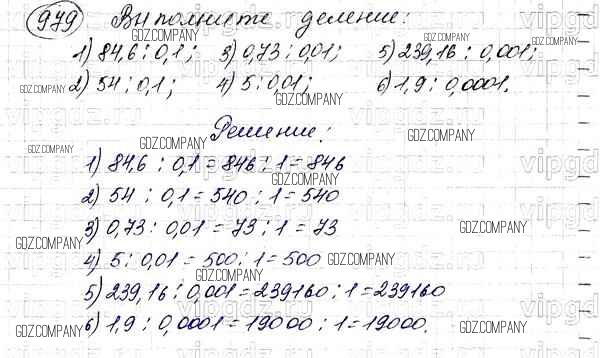 979 Выполните деление:
1) 84,6 : 0,1; 3) 0,73 : 0,01; 5) 239,16 : 0,001;
2) 54 : 0,1; 4) 5 : 0,01; 6) 1,9 : 0,0001.
Решение:
1) 84,6 : 0,1 = 846 : 1 = 846
2) 54 : 0,1 = 540 : 1 = 540
3) 0,73 : 0,01 = 73 : 1 = 73
4) 5 : 0,01 = 500 : 1 = 500
5) 239,16 : 0,001 = 239160 : 1 = 239160
6) 1,9 : 0,0001 = 19000 : 1 = 19000.
GDZ.COMPANY
GDZ.COMPANY
GDZ.COMPANY
GDZ.COMPANY
GDZ.COMPANY
GDZ.COMPANY
GDZ.COMPANY
GDZ.COMPANY
GDZ.COMPANY
GDZ.COMPANY
GDZ.COMPANY
GDZ.COMPANY
GDZ.COMPANY
GDZ.COMPANY